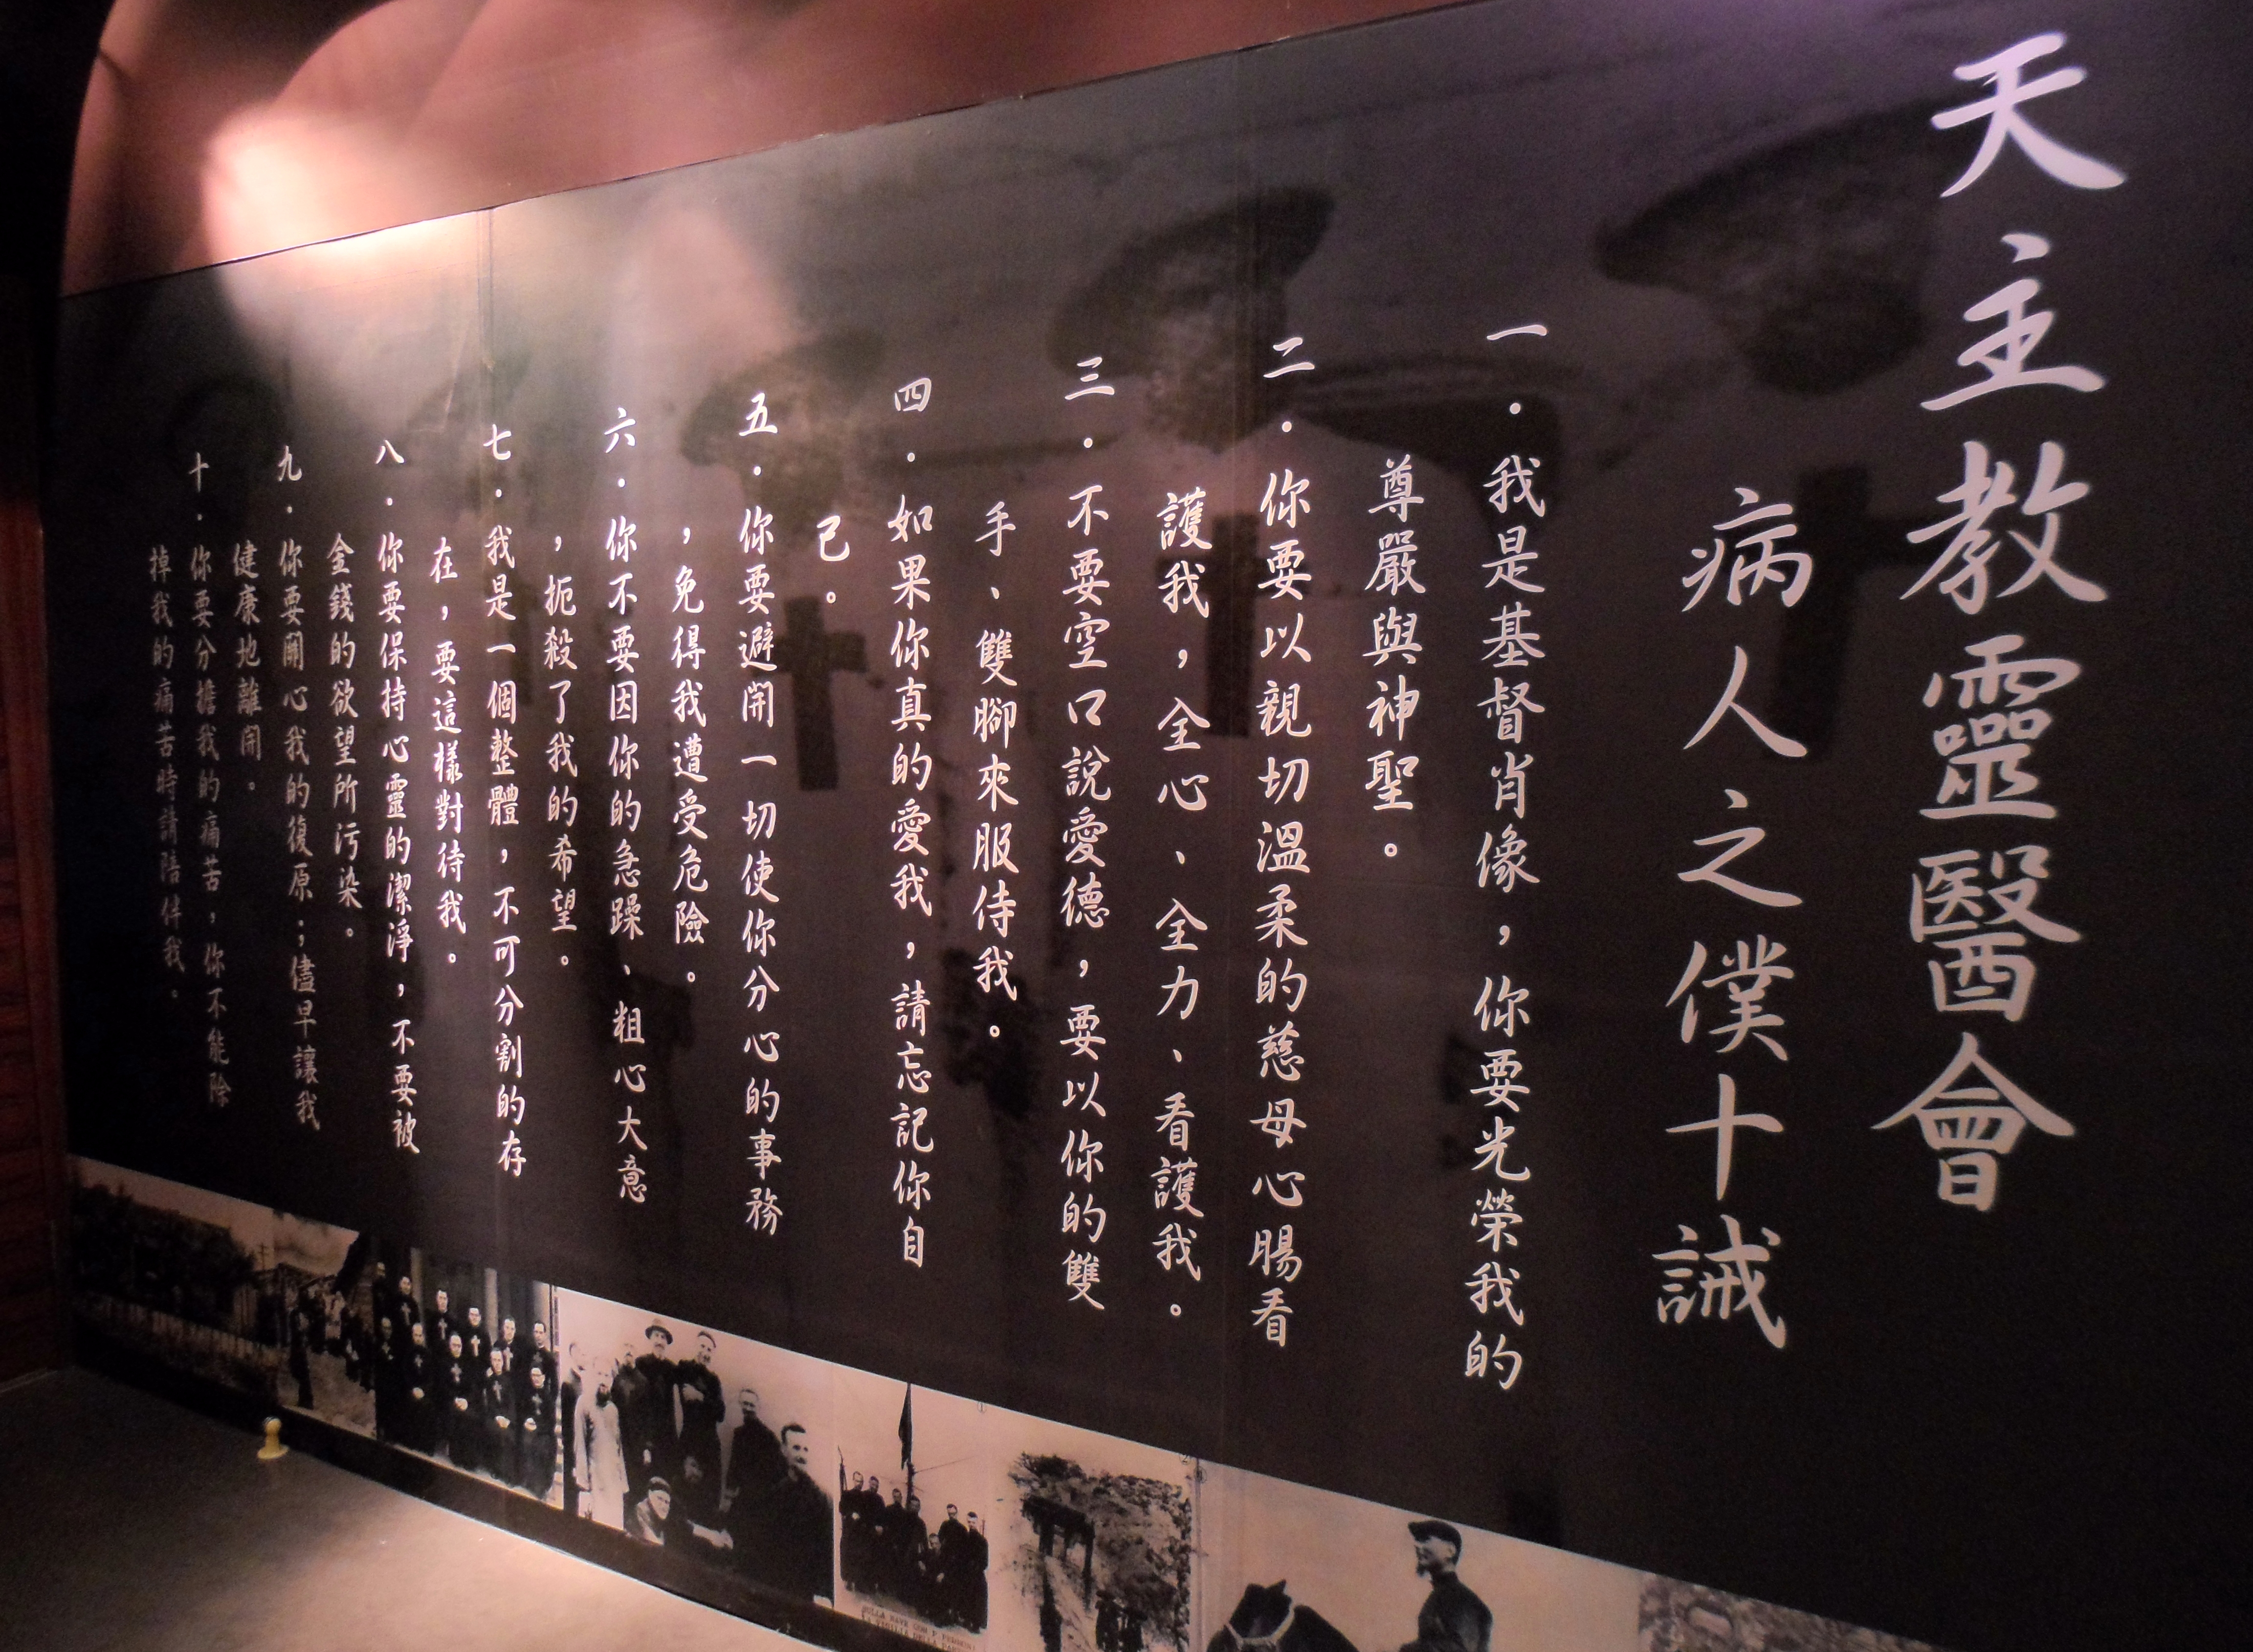 天主教靈醫會
病人之僕十誡
一．我是基督肖像，你要光榮我的
尊嚴與神聖。
二．你要以親切溫柔的慈母心腸看
護我，全心、全力、看護我。
三．不要空口說愛德，要以你的雙
手、雙腳來服侍我。
四．如果你真的愛我，請忘記你自
己。
五．你要避開一切使你分心的事務
，免得我遭受危險。
六．你不要因你的急躁、粗心大意
，扼殺了我的希望。
七．我是一個整體，不可分割的存
在，要這樣對待我。
八．你要保持心靈的潔淨，不要被
金錢的欲望所污染。
九．你要關心我的復原；儘早讓我
健康地離開。
十．你要分擔我的痛苦，你不能除
掉我的痛苦時請陪伴我。